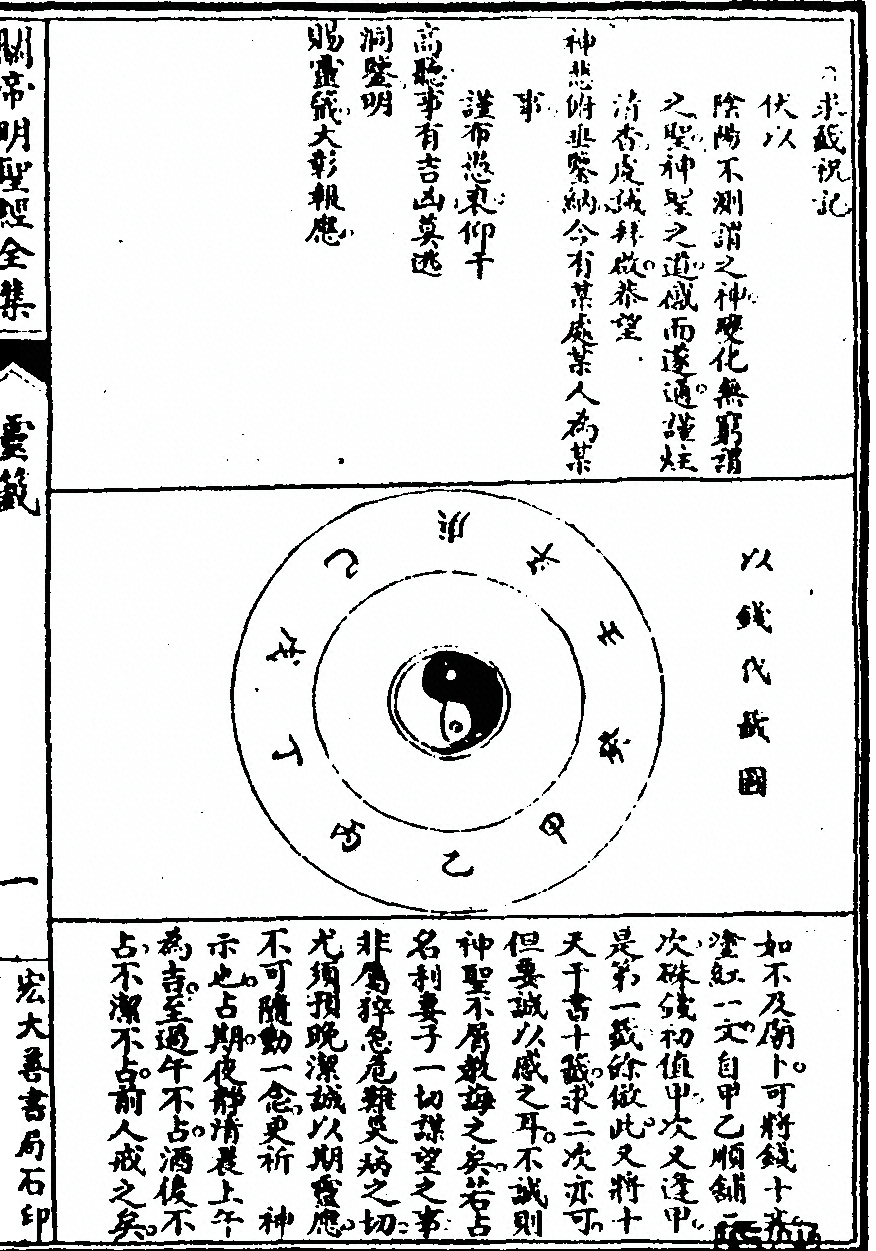 求籤祝記
伏以
陰陽不測謂之神變化無窮謂
之聖神聖之道感而遂通謹炷
清香虔誠拜啟恭望
神悲俯垂鑒納今有某處某人為某
事
謹布悃衷仰干
高聽事有吉凶莫逃
洞鑒明
賜靈籤大彰報應
以錢代籤圖
甲
乙
丙
丁
戊
己
庚
辛
壬
癸
如不及廟卜可將錢十文
塗紅一文自甲乙順鋪
次硃錢初值甲次又逢甲
是第一籤餘倣此又將十
天干書十籤求二次亦可
但要誠以感之耳不誠則
神聖不屑教誨之矣若占
名利妻子一切謀望之事
非屬猝急危難災病之切
尤須預晚潔誠以期靈應
不可隨動一念更祈 神
示也占期夜靜清晨上午
為吉至過午不占酒後不
占不潔不占前人戒之矣
關帝明聖經全集
靈籤
一
宏大善書局石印